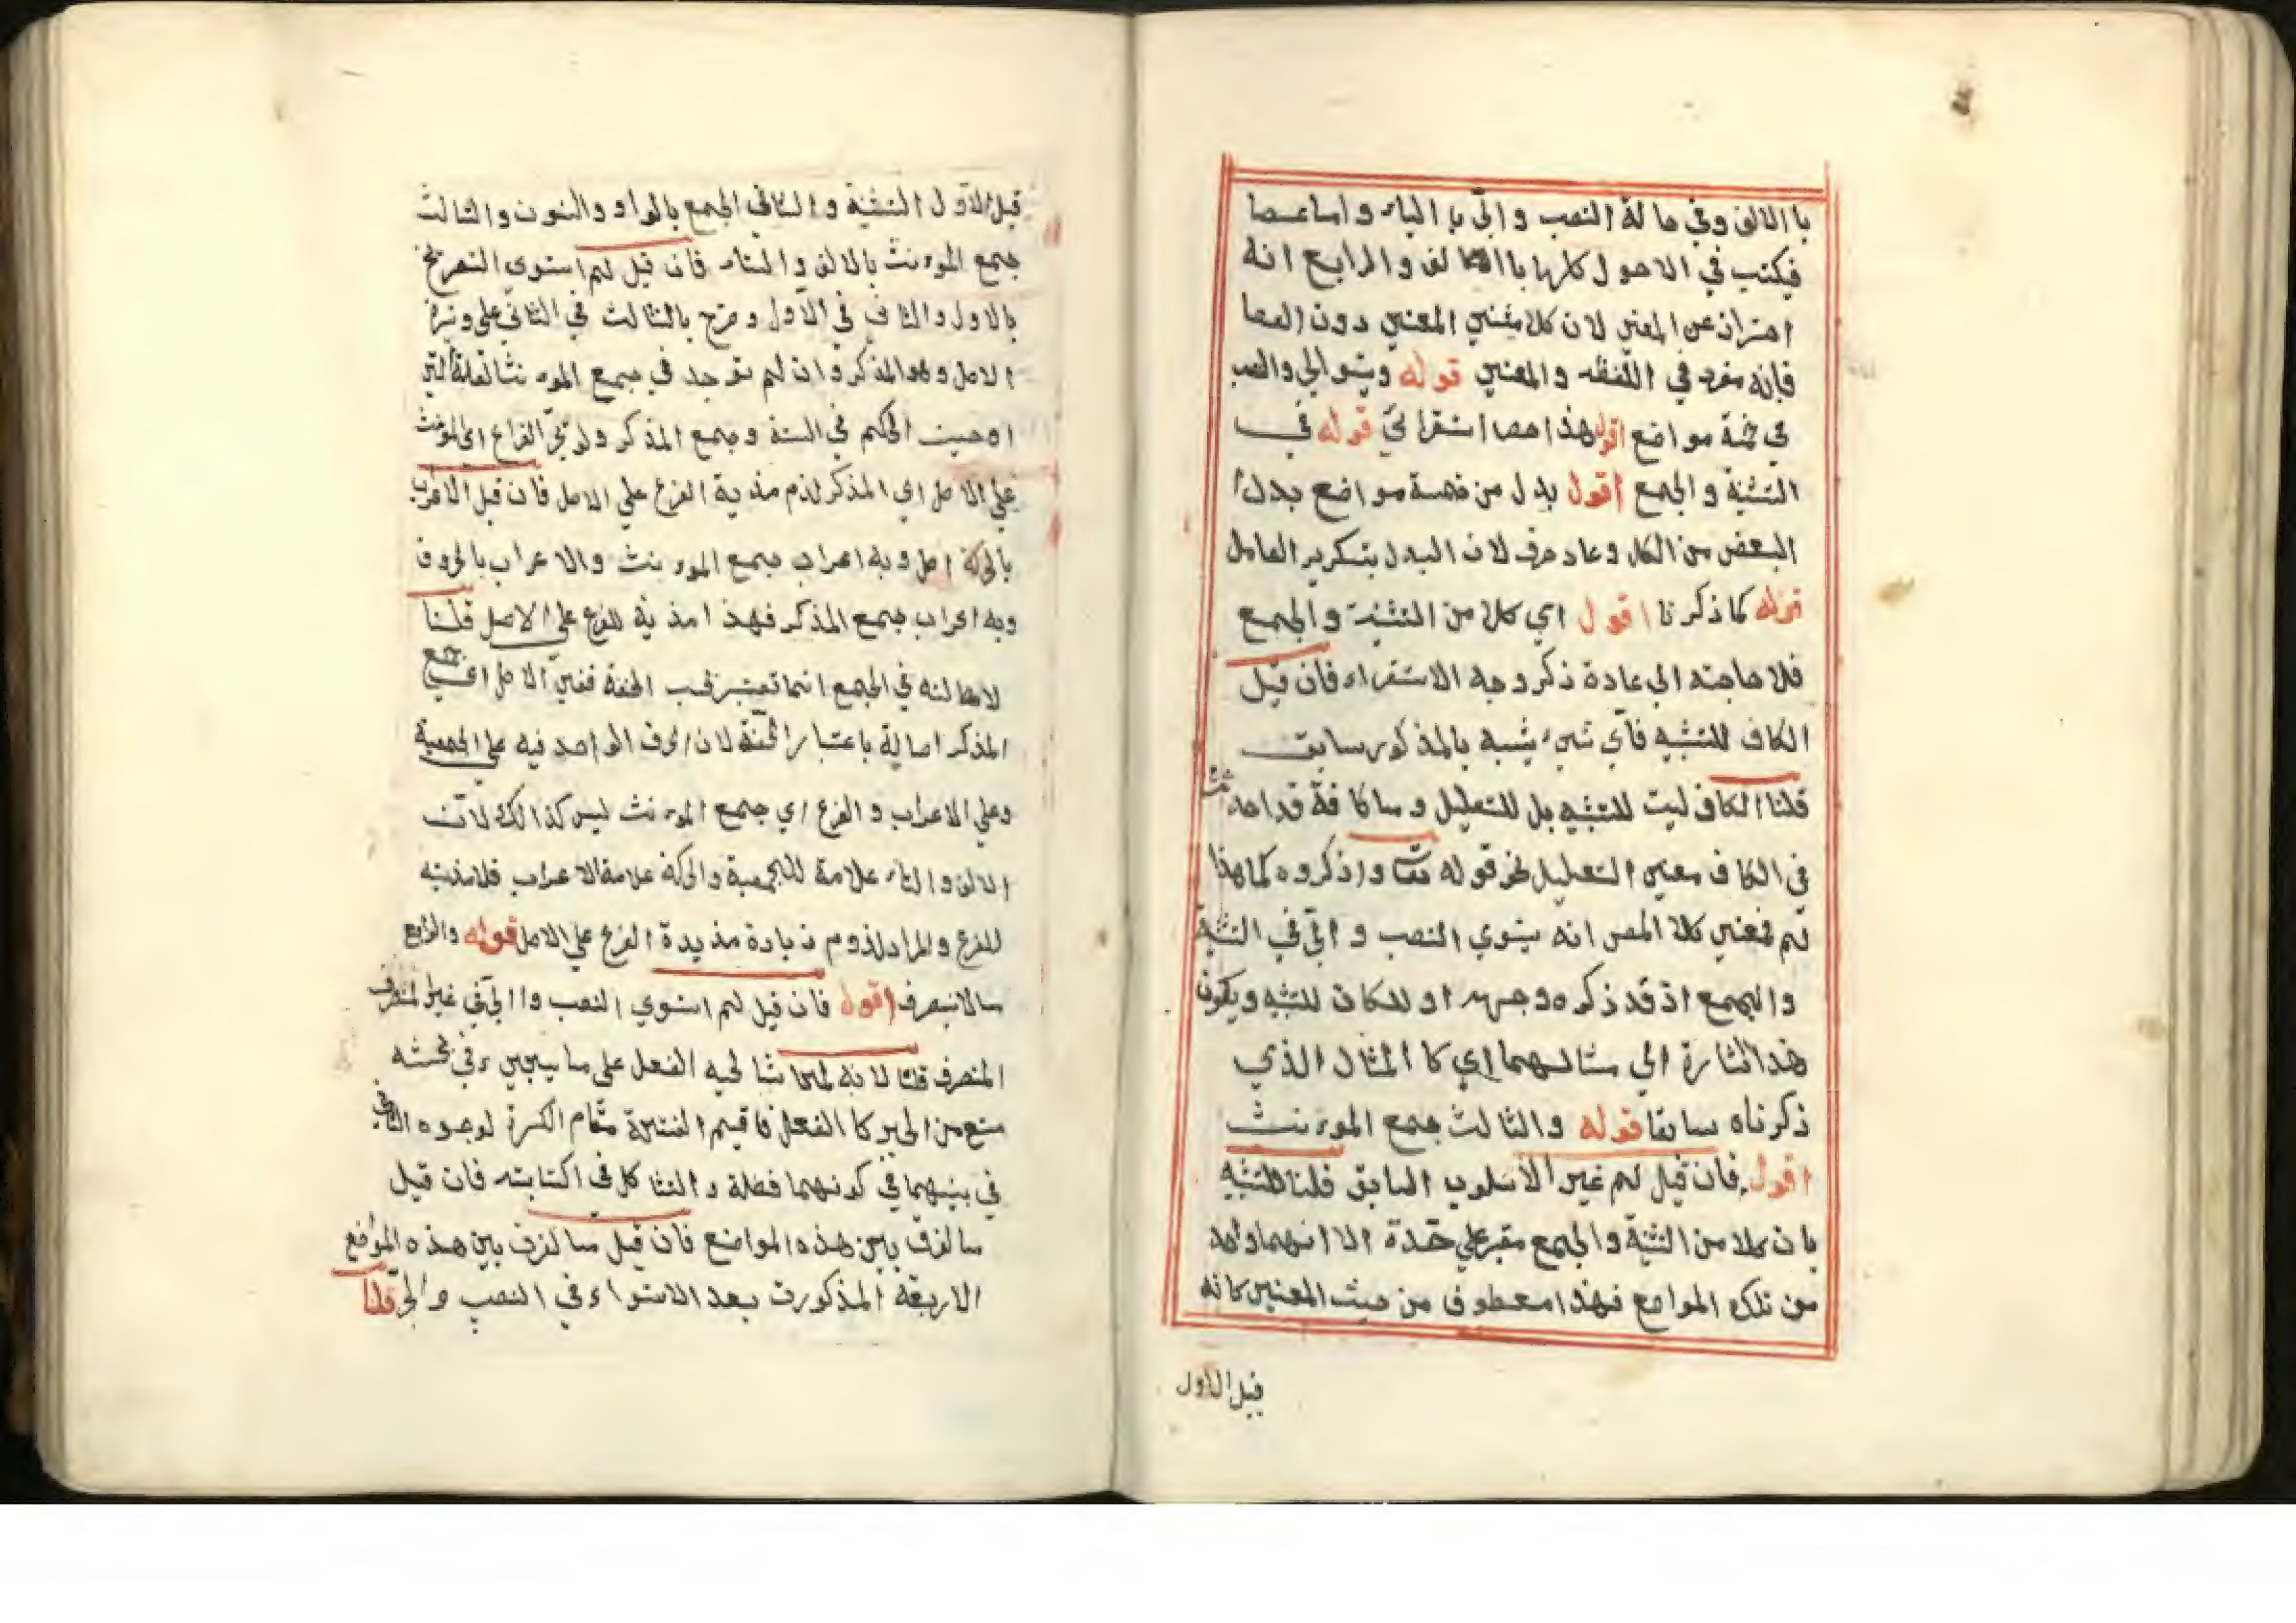 باالالف وفي حالة النصب والجر باالياء واما عصا
فيكتب في الاحول كلها باالالف والرابع انه
احتراز عن المعني لان كلا مثني المعني دون العصا
فإنه مفرد في اللفظ والمعني قوله ويتوالي والنصب
في خمسة مواضع اقول هذا حصا استقرائي قوله في
التثنية والجمع اقول بدل من خمسة مواضع بدل
البعض من الكل وعاد حرف لان البدل بتكرير العامل
قوله كما ذكرنا اقول اي كلا من التثنية والجمع
فلا حاجته الي عادة ذكر وجه الاستقراء فان قيل
الكاف للتشبه فأي شيء يشبه بالمذكور سابق
قلنا الكاف ليت للتشبه بل للتعليل وما كافة قد احد
في الكاف معني التعليل نحو قوله تعا واذكروه كما هذا
لم فمعني كلا المص انه يتوي النصب والجر في التثنية
والجمع اذ قد ذكره وجهه او للكاف للتشبه ويكون
هذا اشارة الي مثالهما اي كا المثال الذي
ذكرناه سابقا قوله والثالث جمع الموءنث
اقول فان قيل لم غير الاسلوب السابق قلنا للتنبيه
بان كلا من التثنية والجمع مقبر علي حقدة الا انهما واحد
من تلك المواضع فهذا معطوف من حيث المعني كانه
قيل الاول
قيل الاول التثنية والثاني الجمع بالواو والنون والثالث
جمع الموءنث بالالف والتاء فان قيل لم استوي النصر
بالاول والثاني في الاول وصرح بالثالث في الثاني علي وتيرة
الاصل وهو المذكر وان لم توجد في جمع الموءنث العلة التي
اوجبت الحكم في الستة وجمع المذكر ولو تجر الفراع اي الموءنث
علي الاصل اي المذكر لذم مذية الفرع علي الاصل فان قيل الاعراب
بالحركة اصل وبه اعراب جمع الموءنث والاعراب بالحروف
وبه اعراب جمع المذكر فهذا مذية للفرع علي الاصل قلنا
لا اصالته في الجمع انما تعتبر الخفة ففي الاصل اعني جمع
المذكر اصالة باعتبار الخفة لان الحرف الواحد فيه علي الجمعية
وعلي الاعراب والفرع اي جمع الموءنث ليس كذالك لان
الالف والتاء علامة للجمعية والحركة علامة الاعراب فلا مذيته
للفرع والمراد لذوم زيادة مذيدة الفرع علي الاصل قوله والرابع
مالا ينصرف اقول فان قيل لم استوي النصب واالجر في غير المنصرف
المنصرف قلنا لانه لما شا لحبه الفعل علي ما سيجيء في بحثه
منع من الجر كا الفعل فاقيم الفتحة مقام الكسرة لوجوه التاخي
في بينهما في كونهما فضلة والتشاكل في اكتابته فان قيل
ما الفرق بين هذه المواضع فان قيل ما لفرق بين هذه المواضع
الاربعة المذكورت بعد الاستواء في النصب والجر قلنا